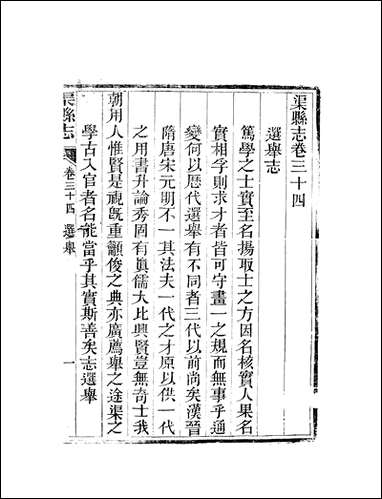 渠縣志卷三十四
選舉志
篤學之士實至名揚取士之方因名核實人果名
實相孚則求才者皆可守畫一之規而無事乎通
變何以歷代選舉有不同者三代以前尚矣漢晉
隋唐宋元明不一其法夫一代之才原以供一代
之用書升論秀罔有眞儒大比興賢豈無奇士我
朝用人惟賢是視旣重籲俊之典亦廣薦舉之途渠之
學古入官者名能當乎其實斯善矣志選舉
渠縣志
卷三十四 選舉
一